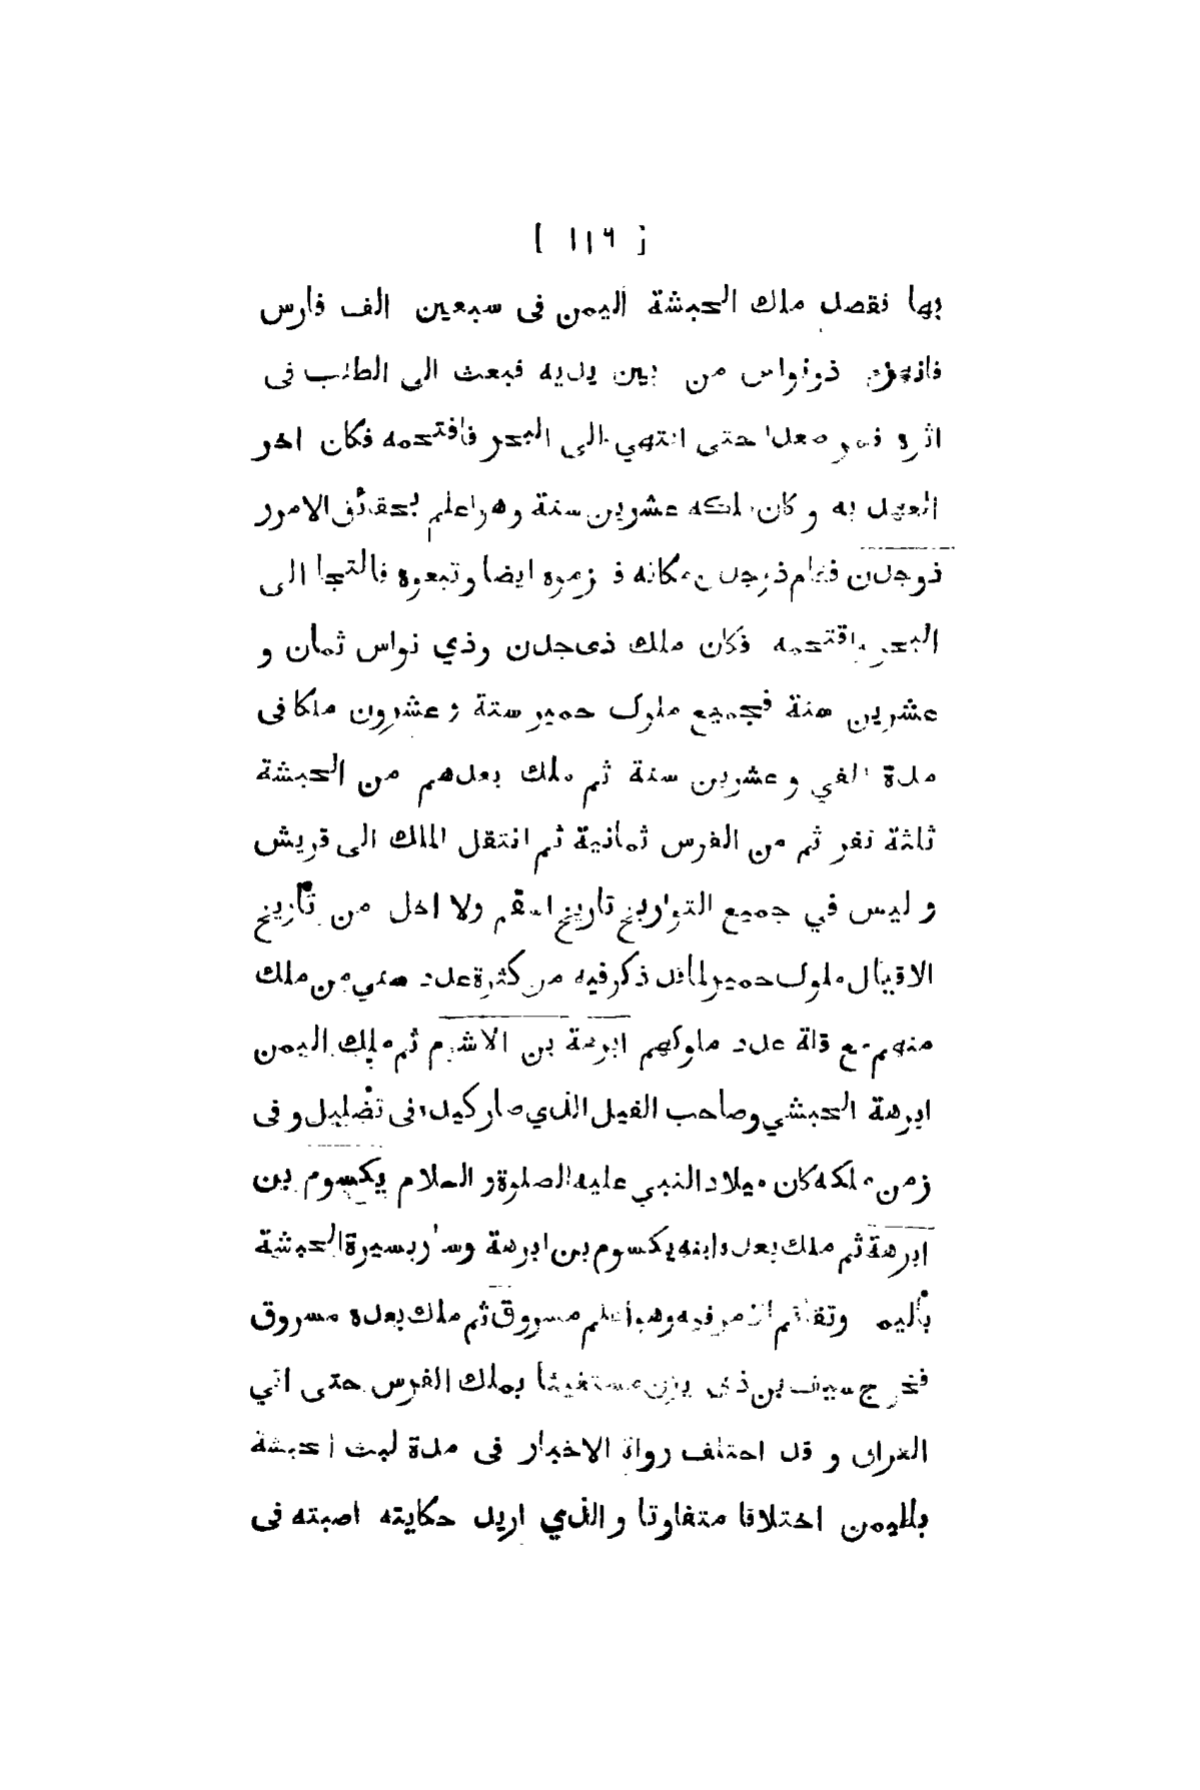 [ ١١٦ ]
بها نقصد ملك الحبشة اليمن فى سبعين الف فارس
فانهزم ذونواس من بين يديه فبعث الى الطلب فى
اثره فمر معدا حتى انتهي الى البحر فاقتحمه فكان اخر
العهد به و كان ملكه عشرين سنة وهو اعلم بحقائق الامور
ذوجدن فقام ذوجدن مكانه فهزموه ايضا وتبعوه فالتجا الى
البحر واقتحمه فكان ملك ذى جدن وذي نواس ثمان و
عشرين سنة فجميع ملوك حمير ستة و عشرون ملكا فى
مدة الفي و عشرين سنة ثم ملك بعدهم من الحبشة
ثلثة نفر ثم من الفرس ثمانية ثم انتقل الملك الى قريش
و ليس في جميع التواريخ تاريخ اسقم ولا اخل من تأريخ
الاقيال ملوك حمير لما قد ذكر فيه من كثرة عدد سني من ملك
منهم مع قلة عدد ملوكهم ابرهة بن الاشرم ثم ملك اليمن
ابرهة الحبشي وصاحب الفيل الذي صار كيده فى تضليل و فى
زمن ملكه كان ميلاد النبي عليه الصلوة و السلام يكسوم بن
ابرهة ثم ملك بعده ابنه يكسوم بن ابرهة وسار بسيرة الحبشة
بأليم وتفاقم الامر فيه وهو اعلم مسروق ثم ملك بعده مسروق
فخرج سيف بن ذى يزن مستغيثا بملك الفرس حتى اتي
العراق و قد اختلف رواة الاخبار فى مدة لبث الحبشة
باليمن اختلافا متفاوتا و الذي اريد حكايته اصبته فى